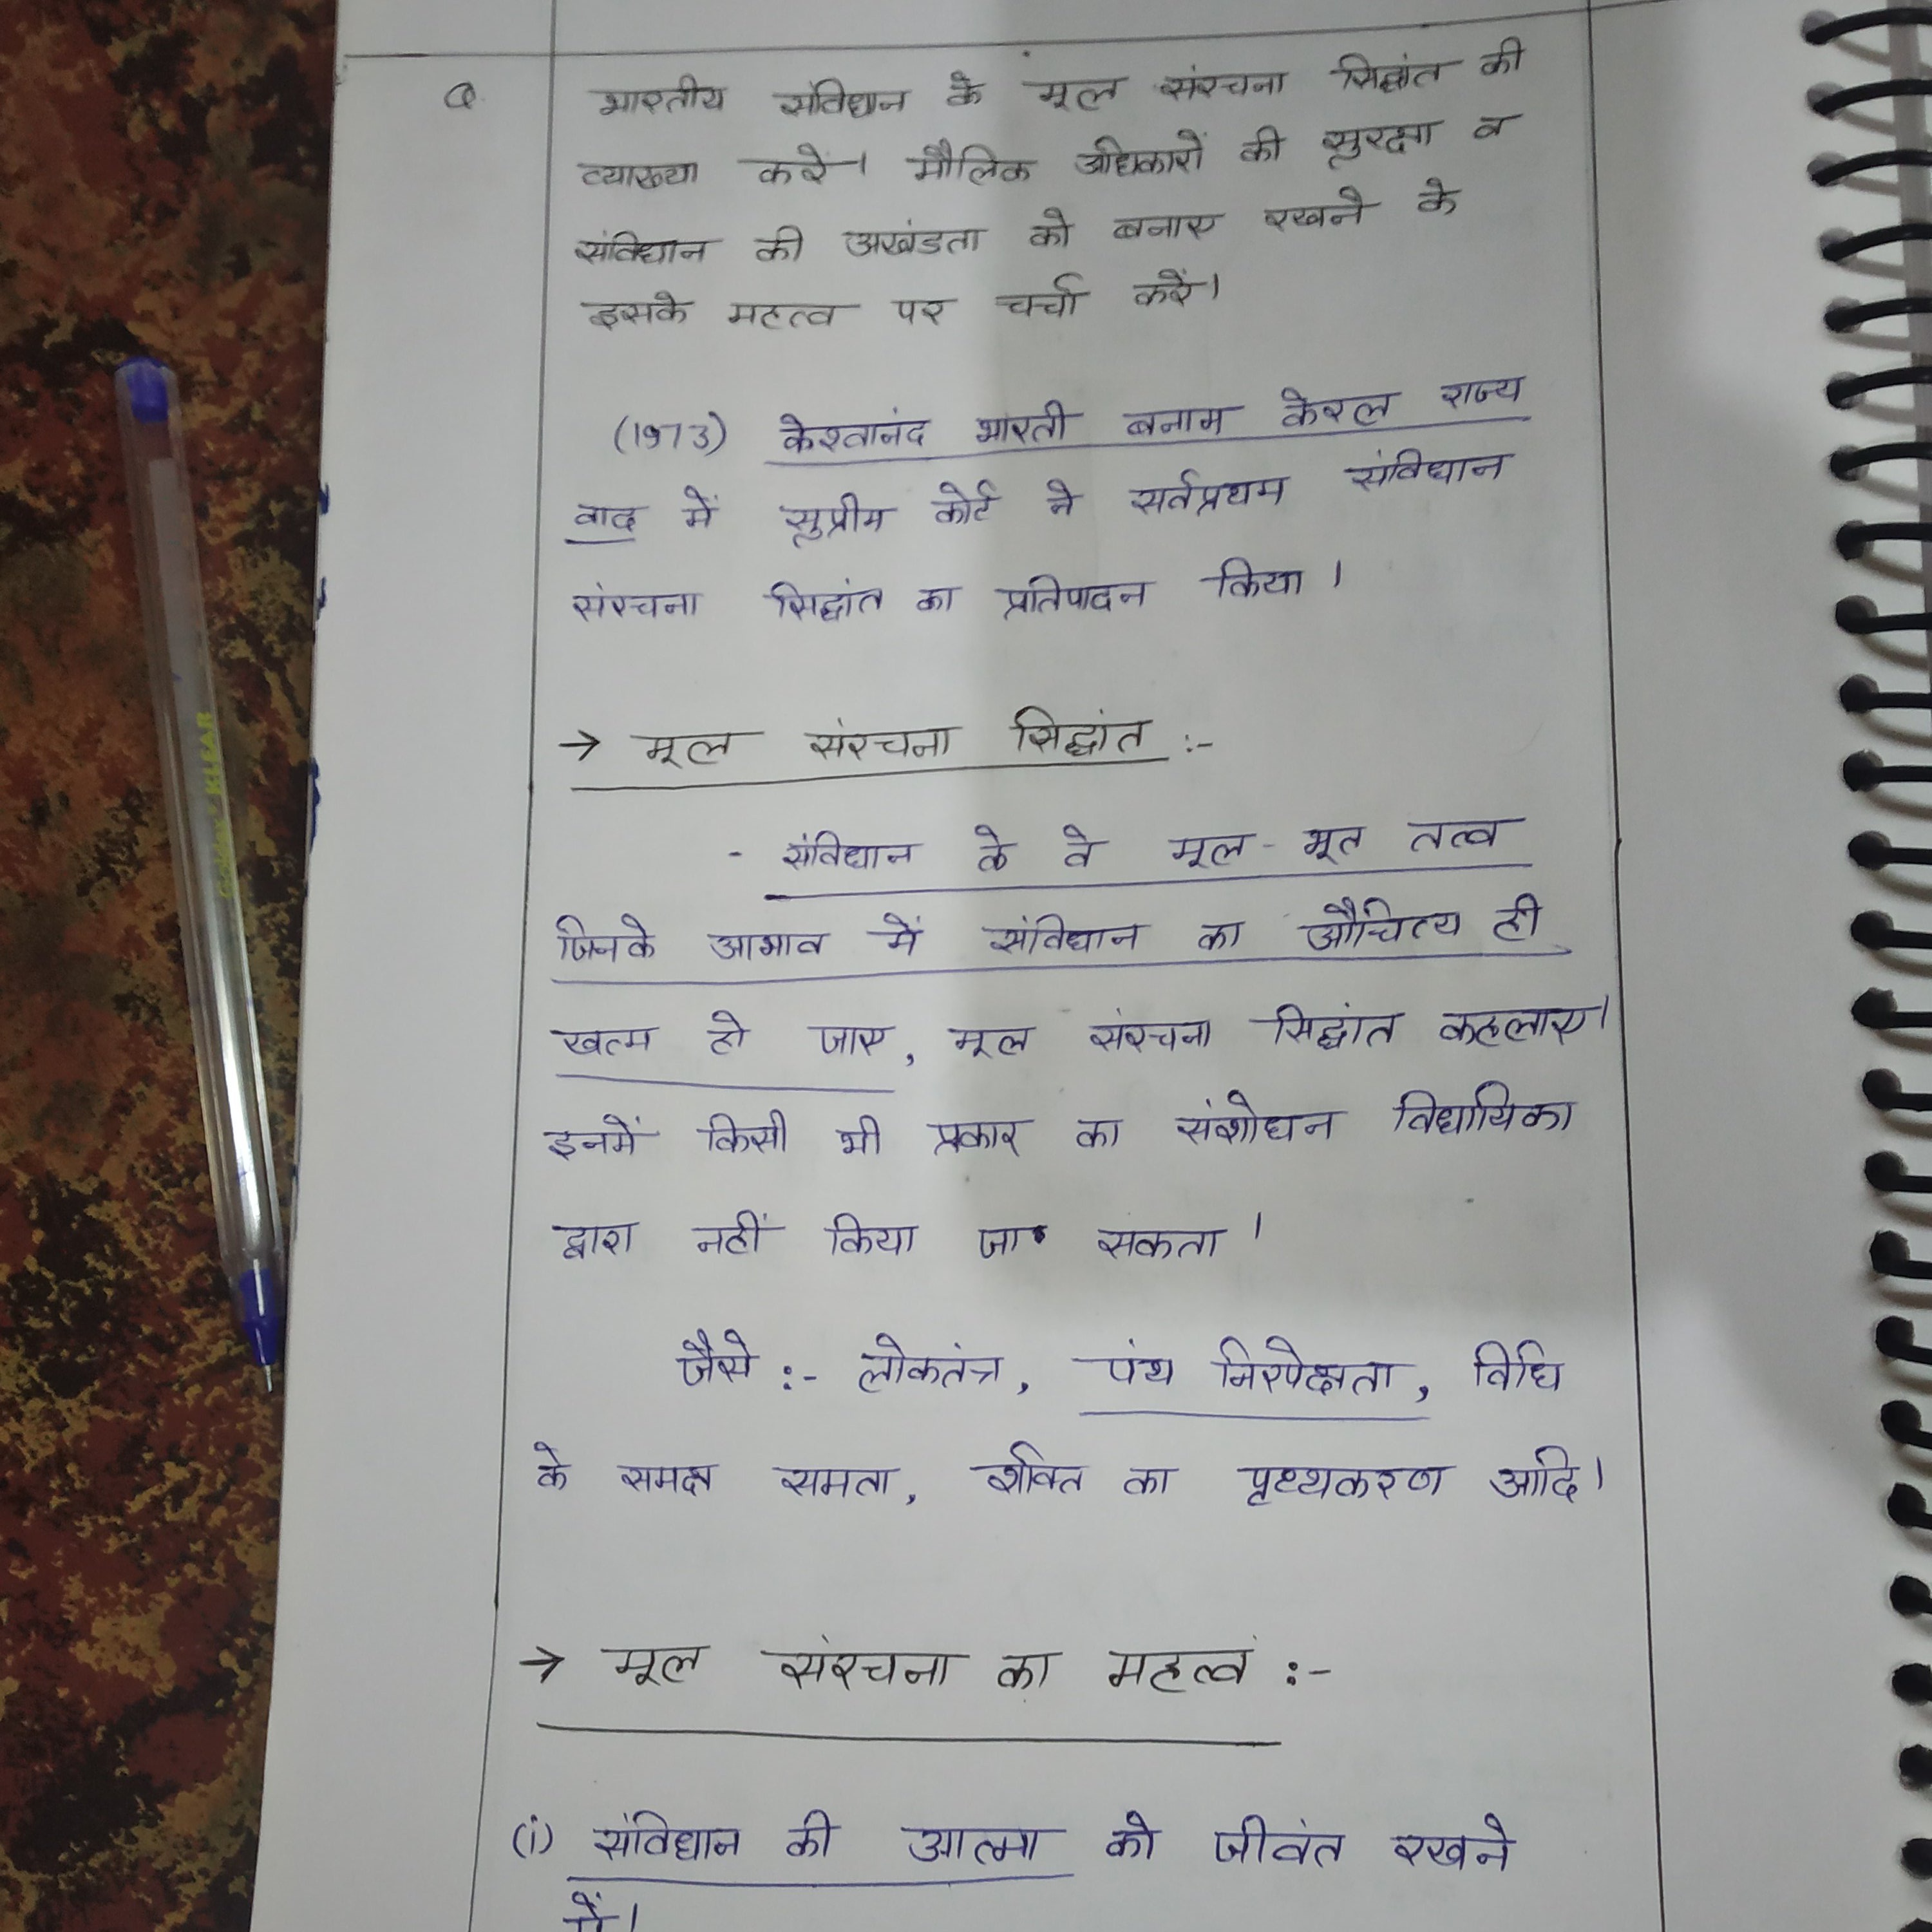 Q. भारतीय संविधान के मूल संरचना सिद्धांत की
व्याख्या करें। मौलिक अधिकारों की सुरक्षा व
संविधान की अखंडता को बनाए रखने के
इसके महत्व पर चर्चा करें।
(1973) केशवानंद भारती बनाम केरल राज्य
वाद में सुप्रीम कोर्ट ने सर्वप्रथम संविधान
संरचना सिद्धांत का प्रतिपादन किया।
→ मूल संरचना सिद्धांत :-
- संविधान के वे मूल-भूत तत्व
जिनके आभाव में संविधान का औचित्य ही
खत्म हो जाए, मूल संरचना सिद्धांत कहलाए।
इनमें किसी भी प्रकार का संशोधन विधायिका
द्वारा नहीं किया जा सकता।
जैसे :- लोकतंत्र, पंथ निरपेक्षता, विधि
के समक्ष समता, शक्ति का पृथ्थकरण आदि।
→ मूल संरचना का महत्व :-
(i) संविधान की आत्मा को जीवंत रखने
में।